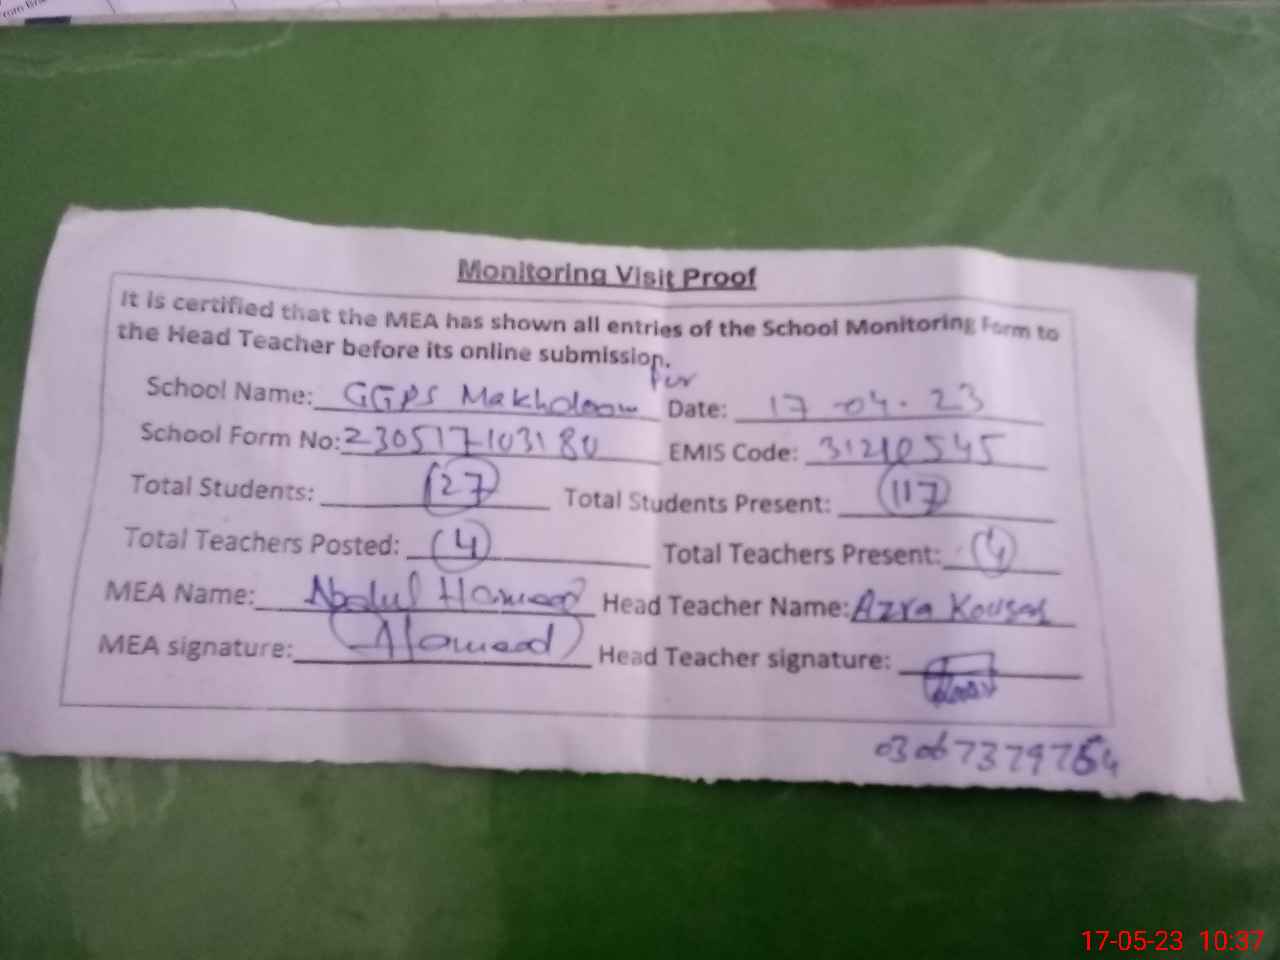 Monitoring Visit Proof
It is certified that the MEA has shown all entries of the School Monitoring Form to
the Head Teacher before its online submission.
School Name: GGPS Makhdoom Pur Date: 17-04-23
School Form No: 230517103180 EMIS Code: 31210545
Total Students: 127 Total Students Present: 117
Total Teachers Posted: 4 Total Teachers Present: 4
MEA Name: Abdul Hameed Head Teacher Name: Azra Kousar
MEA signature: Hameed Head Teacher signature:
17-05-23 10:37